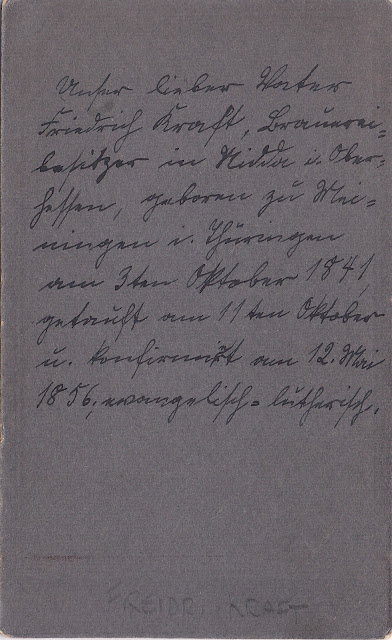 Unser lieber Vater
Friedrich Kraft, Brauerei=
besitzer in Nidda i. Ober=
hessen, geboren zu Mei=
ningen i. Thüringen
am 3ten Oktober 1841,
getauft am 11ten Oktober
u. konfirmirt am 12. Mai
1856, evangelisch=lutherisch.
FREIDR. KRAFT